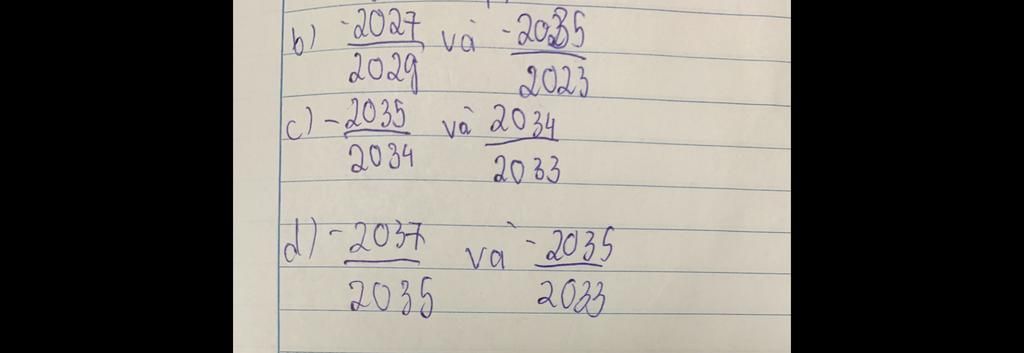 b) -2027/2029 và -2035/2023
c) -2035/2034 và 2034/2033
d) -2037/2035 và -2035/2033